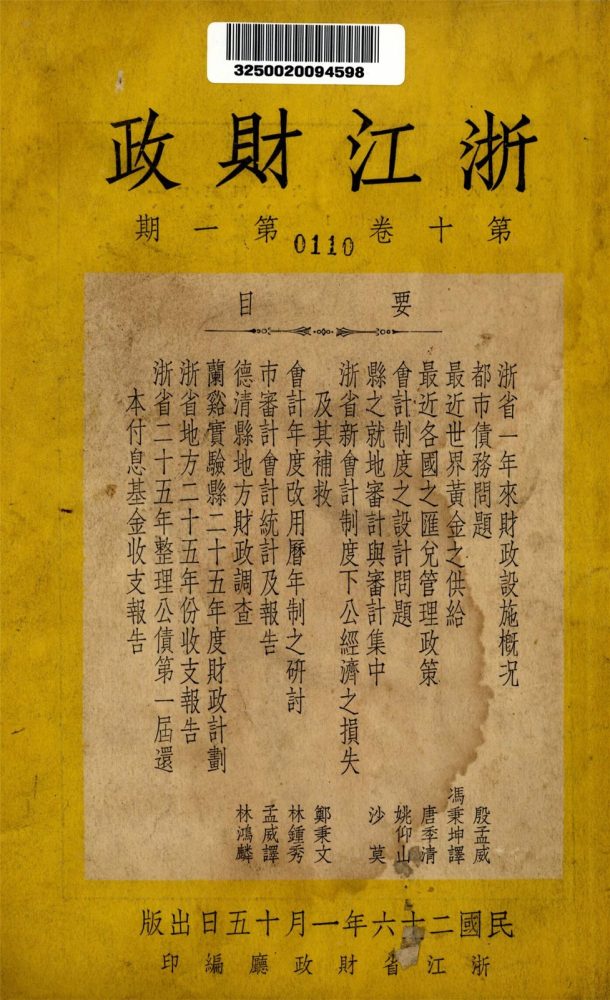 3250020094598
浙江財政
第十卷第一期
0110
要目
浙省一年來財政設施概況
都市債務問題 殷孟威
最近世界黃金之供給 馮秉坤譯
最近各國之匯兌管理政策 唐季清
會計制度之設計問題 姚仰山
縣之就地審計與審計集中 沙莫
浙省新會計制度下公經濟之損失
及其補救 鄭秉文
會計年度改用曆年制之研討 林鍾秀
市審計會計統計及報告 孟威譯
德清縣地方財政調查 林鴻麟
蘭谿實驗縣二十五年度財政計劃
浙省地方二十五年份收支報告
浙省二十五年整理公債第一屆還
本付息基金收支報告
民國二十六年一月十五日出版
浙江省財政廳編印